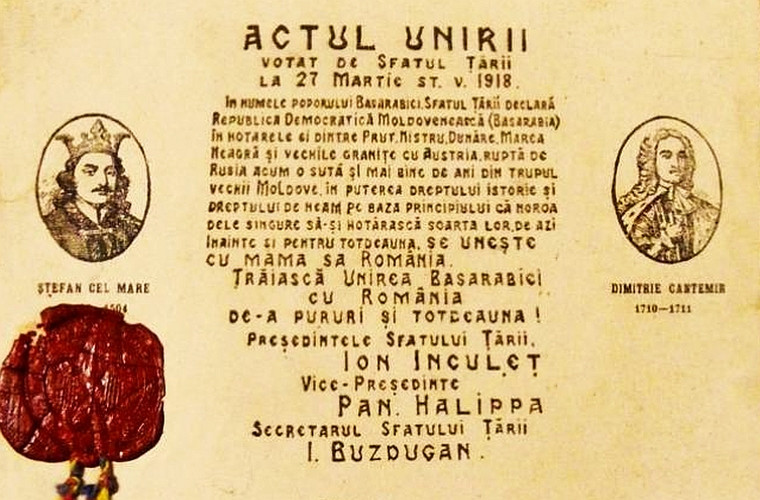 ACTUL UNIRII
VOTAT DE SFATUL ȚĂRII
LA 27 MARTIE ST. V. 1918.
ÎN NUMELE POPORULUI BASARABICI, SFATUL ȚĂRII DECLARĂ
REPUBLICA DEMOCRATICĂ MOLDOVENEASCĂ (BASARABIA)
ÎN HOTARELE EI DINTRE PRUT, NISTRU, DUNĂRE, MAREA
NEAGRĂ ȘI VECHILE GRANIȚE CU AUSTRIA, RUPTĂ DE
RUSIA ACUM O SUTĂ ȘI MAI BINE DE ANI DIN TRUPUL
VECHII MOLDOVE, ÎN PUTEREA DREPTULUI ISTORIC ȘI
DREPTULUI DE NEAM, PE BAZA PRINCIPIULUI CĂ NOROA
DELE SINGURE SĂ-ȘI HOTĂRASCĂ SOARTA LOR, DE AZI
ÎNAINTE ȘI PENTRU TOTDEAUNA, SE UNEȘTE
CU MAMA SA ROMÂNIA.
TRĂIASCĂ UNIREA BASARABICI
CU ROMÂNIA
DE-A PURURI ȘI TOTDEAUNA!
PREȘEDINTELE SFATULUI ȚĂRII,
ION INCULEȚ
VICE-PREȘEDINTE
PAN. HALIPPA
SECRETARUL SFATULUI ȚĂRII
I. BUZDUGAN.
ȘTEFAN CEL MARE
DIMITRIE CANTEMIR
1710—1711